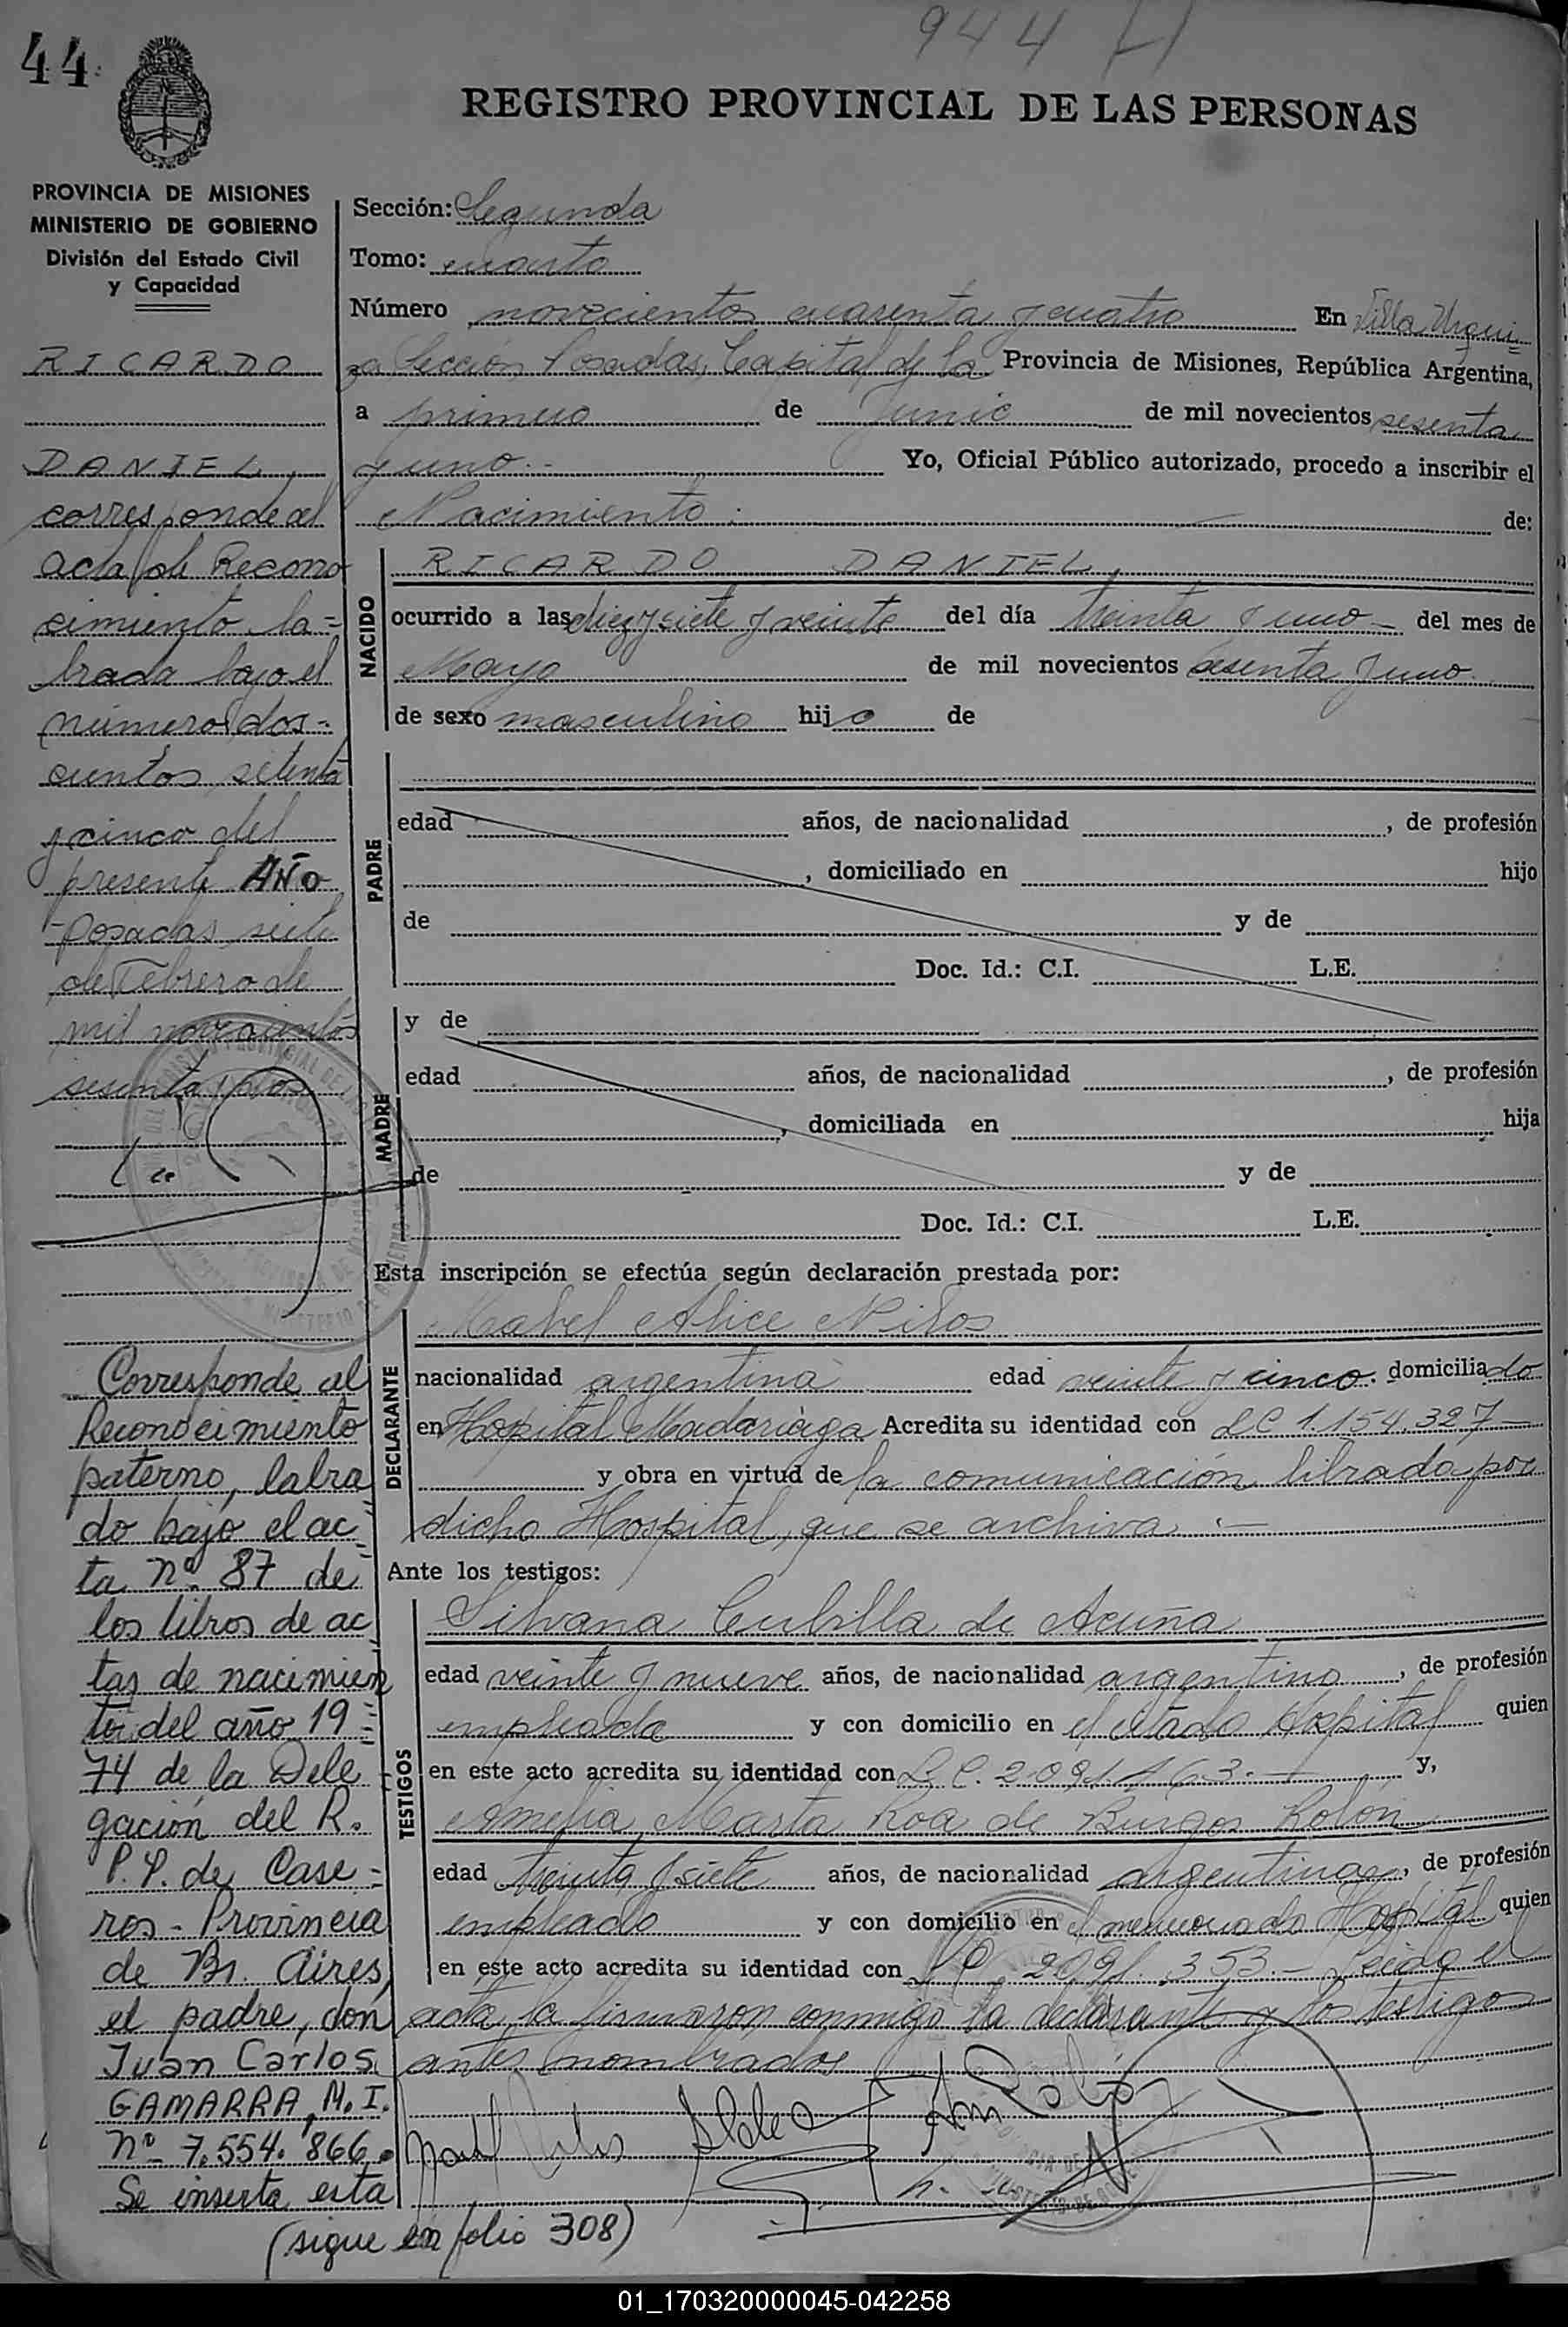 944
44
REGISTRO PROVINCIAL DE LAS PERSONAS
PROVINCIA DE MISIONES
MINISTERIO DE GOBIERNO
División del Estado Civil
y Capacidad
RICARDO
DANIEL,
corresponde al
acta de Recono
cimiento la=
brada bajo el
número dos-
cientos setenta
y cinco del
presente AÑO
Posadas siete
de Febrero de
mil novecientos
sesenta y dos
Corresponde al
Reconocimiento
paterno, labra
do bajo el ac
ta nº 87 de
los libros de ac
tas de nacimien
to del año 19=
74 de la Dele
gación del R.
P.P. de Case=
ros - Provincia
de Bs. Aires,
el padre, don
Juan Carlos
GAMARRA, M.I.
nº 7.554.866.
Se inserta esta
(sigue en folio 308)
Sección: Segunda
Tomo: cuarto
Número novecientos cuarenta y cuatro En Villa Urqui=
za Sección Posadas, Capital de la Provincia de Misiones, República Argentina,
a primero de Junio de mil novecientos sesenta
y uno.- Yo, Oficial Público autorizado, procedo a inscribir el
Nacimiento: de:
NACIDO
RICARDO DANIEL,
ocurrido a las diez y siete y veinte del día treinta y uno - del mes de
Mayo de mil novecientos sesenta y uno
de sexo masculino hijo de
PADRE
edad años, de nacionalidad , de profesión
, domiciliado en hijo
de y de
Doc. Id.: C.I. L.E.
MADRE
y de
edad años, de nacionalidad , de profesión
, domiciliada en hija
de y de
Doc. Id.: C.I. L.E.
Esta inscripción se efectúa según declaración prestada por:
DECLARANTE
Mabel Alice
nacionalidad argentina edad veinte y cinco. domiciliado
en Hospital Madariaga Acredita su identidad con LC 1.154.327-
y obra en virtud de la comunicación librada por
dicho Hospital, que se archiva.-
Ante los testigos:
TESTIGOS
Silvana Cubilla de Acuña
edad veinte y nueve años, de nacionalidad argentina , de profesión
empleada y con domicilio en el citado Hospital quien
en este acto acredita su identidad con L.C. 2.091.163.- y,
Amelia Marta Roa de Burgos Rolón
edad treinta y siete años, de nacionalidad argentina , de profesión
empleado y con domicilio en el mencionado Hospital quien
en este acto acredita su identidad con LC. 2091.353.- Leída el
acta, la firmaron conmigo la declarante y los testigos
antes nombrados
01_170320000045-042258